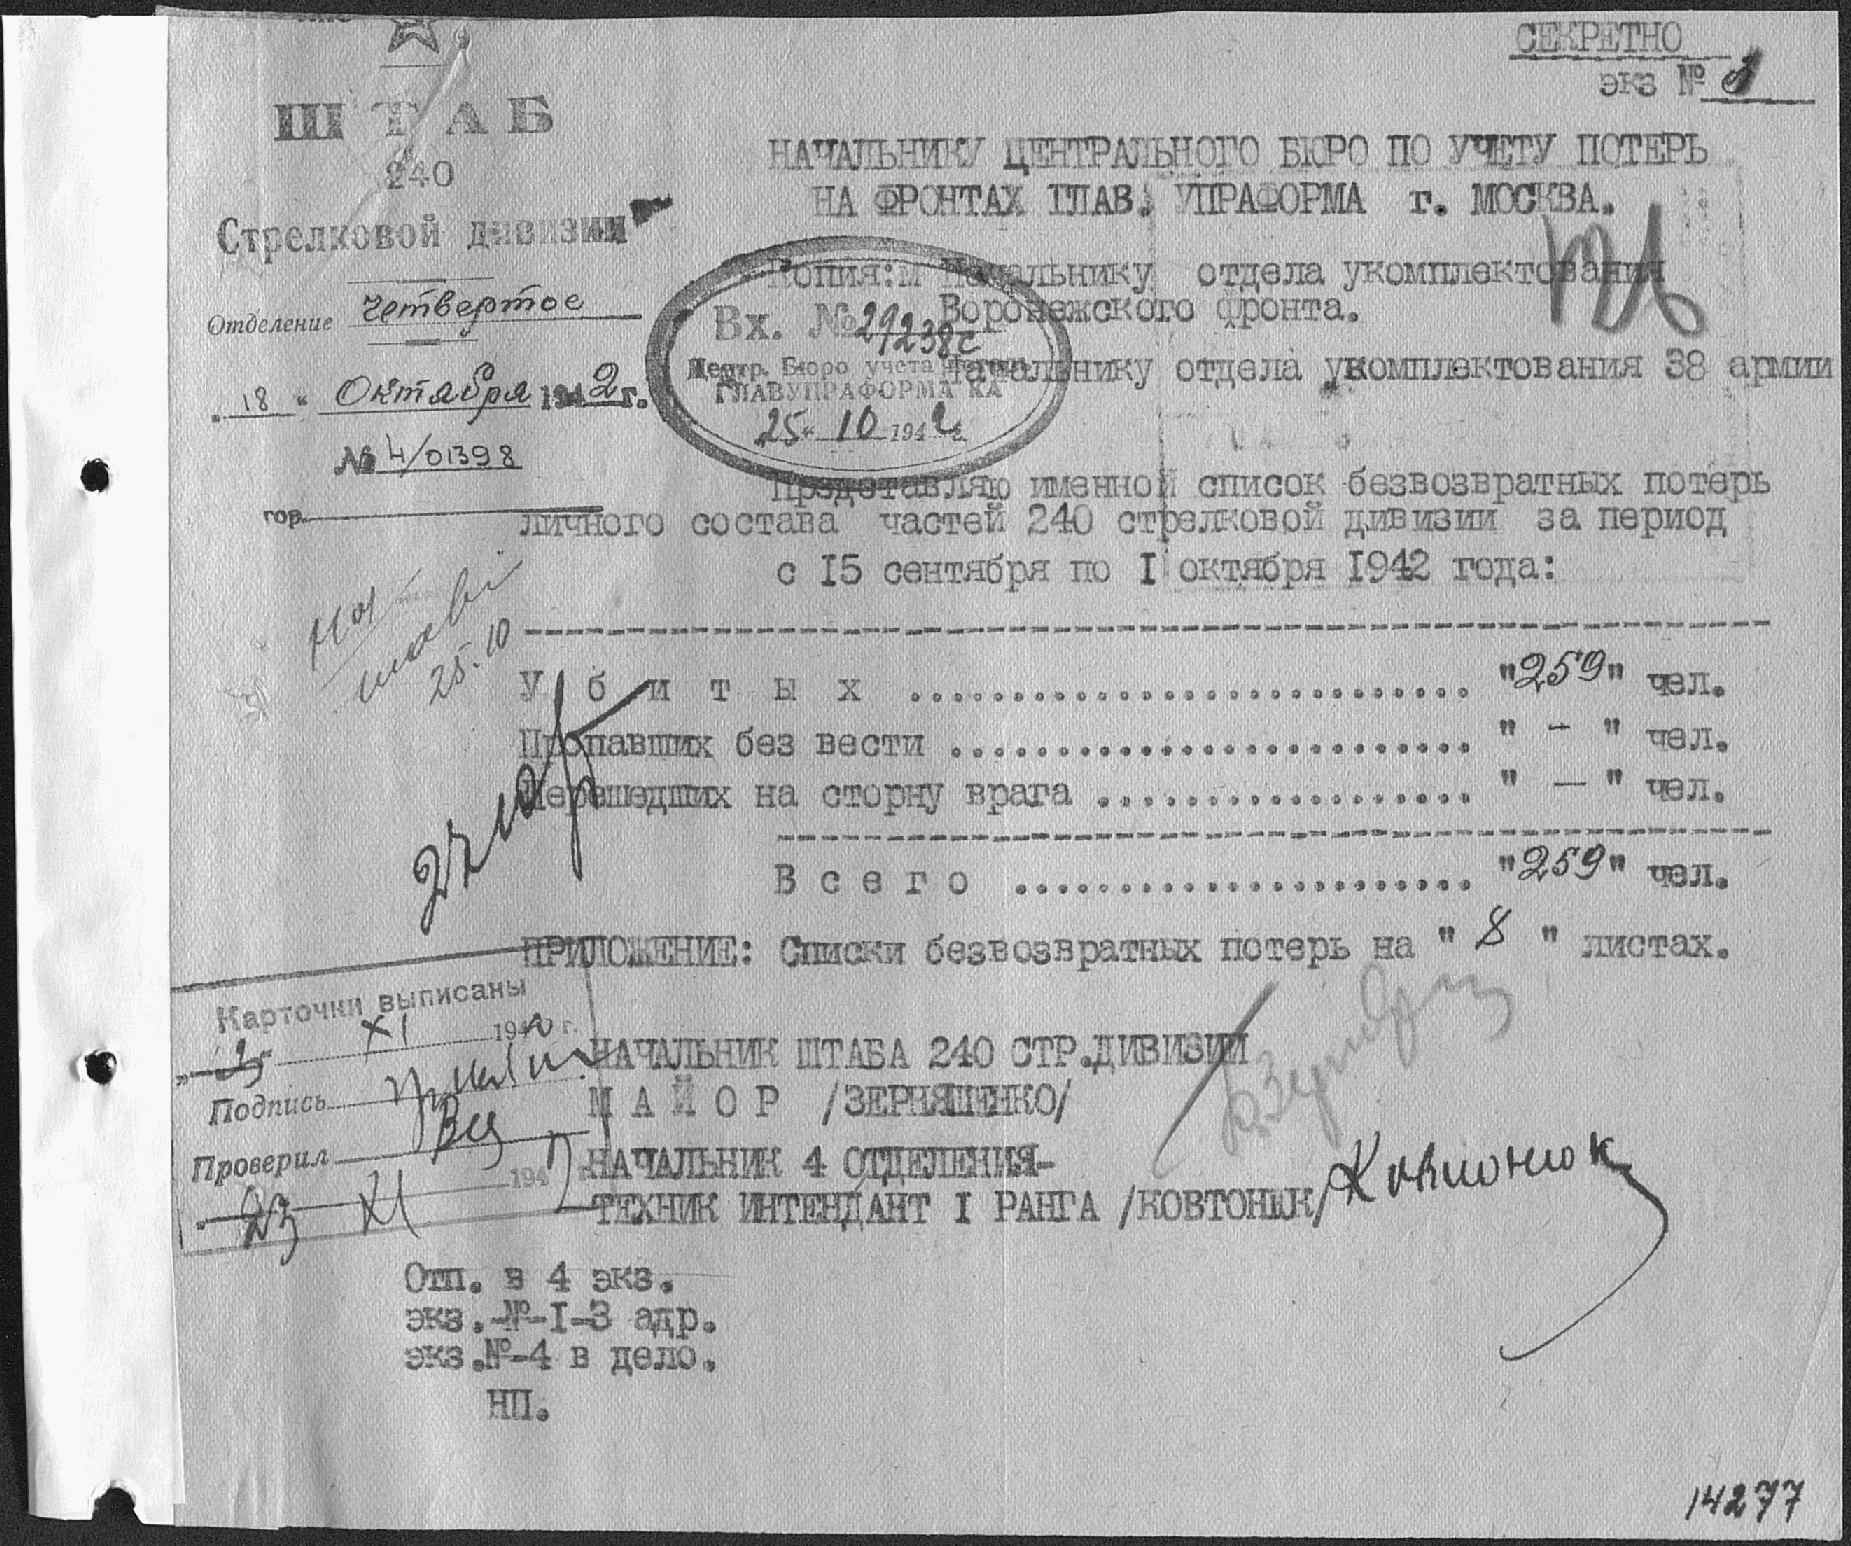 СЕКРЕТНО
экз №
ШТАБ
240
Стрелковой дивизии
Отделение четвертое
„18“ Октября 1942 г.
№ 4/01398
гор.
НАЧАЛЬНИКУ ЦЕНТРАЛЬНОГО БЮРО ПО УЧЕТУ ПОТЕРЬ
НА ФРОНТАХ ГЛАВ. УПРАФОРМА г. МОСКВА.
Копия: Начальнику отдела укомплектования
Воронежского фронта.
Начальнику отдела укомплектования 38 армии
Вх. № 29238с
Центр. Бюро учета потерь
ГЛАВУПРАФОРМА КА
25 " 10 1942 г.
Представляю именной список безвозвратных потерь
личного состава частей 240 стрелковой дивизии за период
с I5 сентября по I октября I942 года:
25.10
У б и т ы х .......................... "259" чел.
Пропавших без вести ........................ " - " чел.
Перешедших на сторну врага .................. " — " чел.
В с е г о ...................... "259" чел.
ПРИЛОЖЕНИЕ: Списки безвозвратных потерь на " 8 " листах.
Карточки выписаны
XI 194 г.
Подпись
Проверил
23 XI 194
НАЧАЛЬНИК ШТАБА 240 СТР.ДИВИЗИИ
М А Й О Р /ЗЕРНЯШЕНКО/
НАЧАЛЬНИК 4 ОТДЕЛЕНИЯ-
ТЕХНИК ИНТЕНДАНТ I РАНГА /КОВТОНЮК/ Ковтонюк
Отп. в 4 экз.
экз.-№-I-3 адр.
экз.№-4 в дело.
НП.
14277